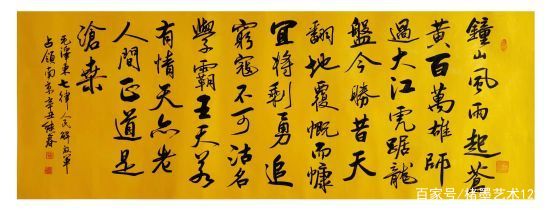 鐘山風雨起蒼
黄百萬雄師
過大江虎踞龍
盤今勝昔天
翻地覆慨而慷
宜將剩勇追
窮寇不可沽名
學霸王天若
有情天亦老
人間正道是
滄桑
毛澤東七律人民解放軍
占領南京辛丑
百家号/楮墨艺术12